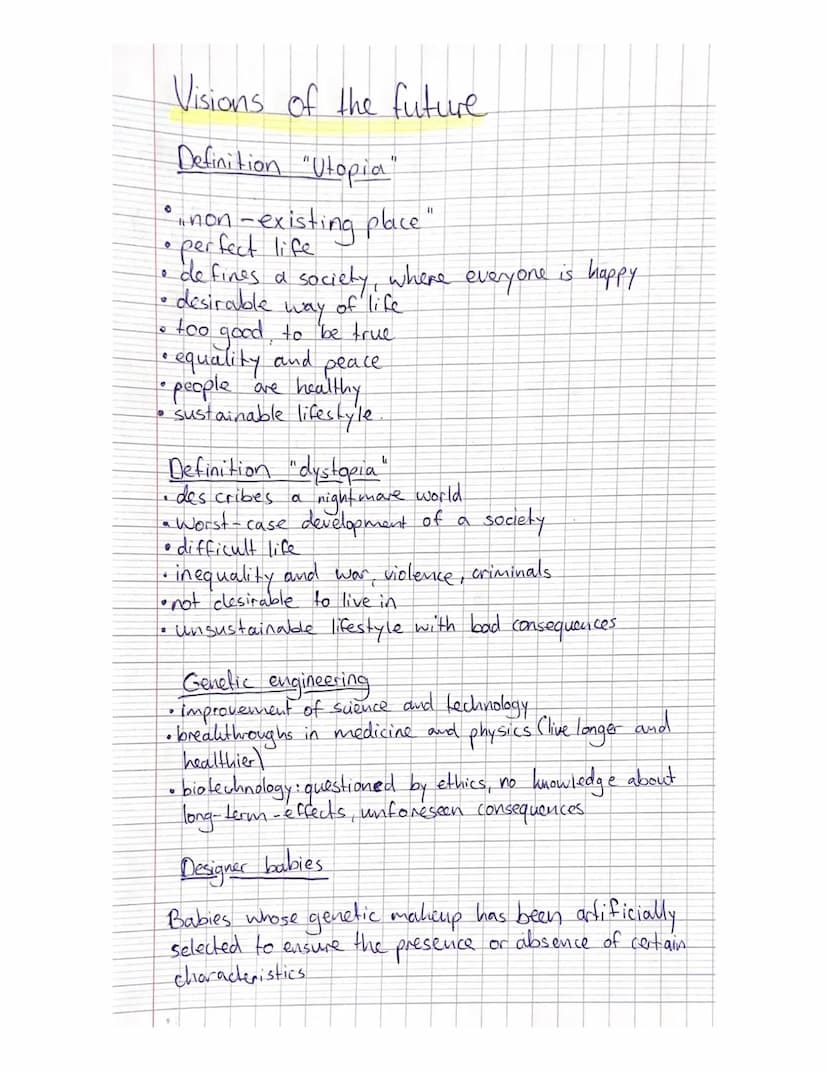 Visions of the future
Definition "Utopia"
• „non-existing place"
• perfect life
• defines a society, where everyone is happy
• desirable way of life
• too good, to be true
• equality and peace
• people are healthy
• sustainable lifestyle.
Definition "dystopia"
• describes a nightmare world
• Worst-case development of a society
• difficult life
• inequality and war, violence, criminals
• not desirable to live in
• unsustainable lifestyle with bad consequences
Genetic engineering
• improvement of science and technology
• breakthroughs in medicine and physics (live longer and
healthier)
• biotechnology: questioned by ethics, no knowledge about
long-term-effects, unforeseen consequences
Designer babies
Babies whose genetic makeup has been artificially
selected to ensure the presence or absence of certain
characteristics